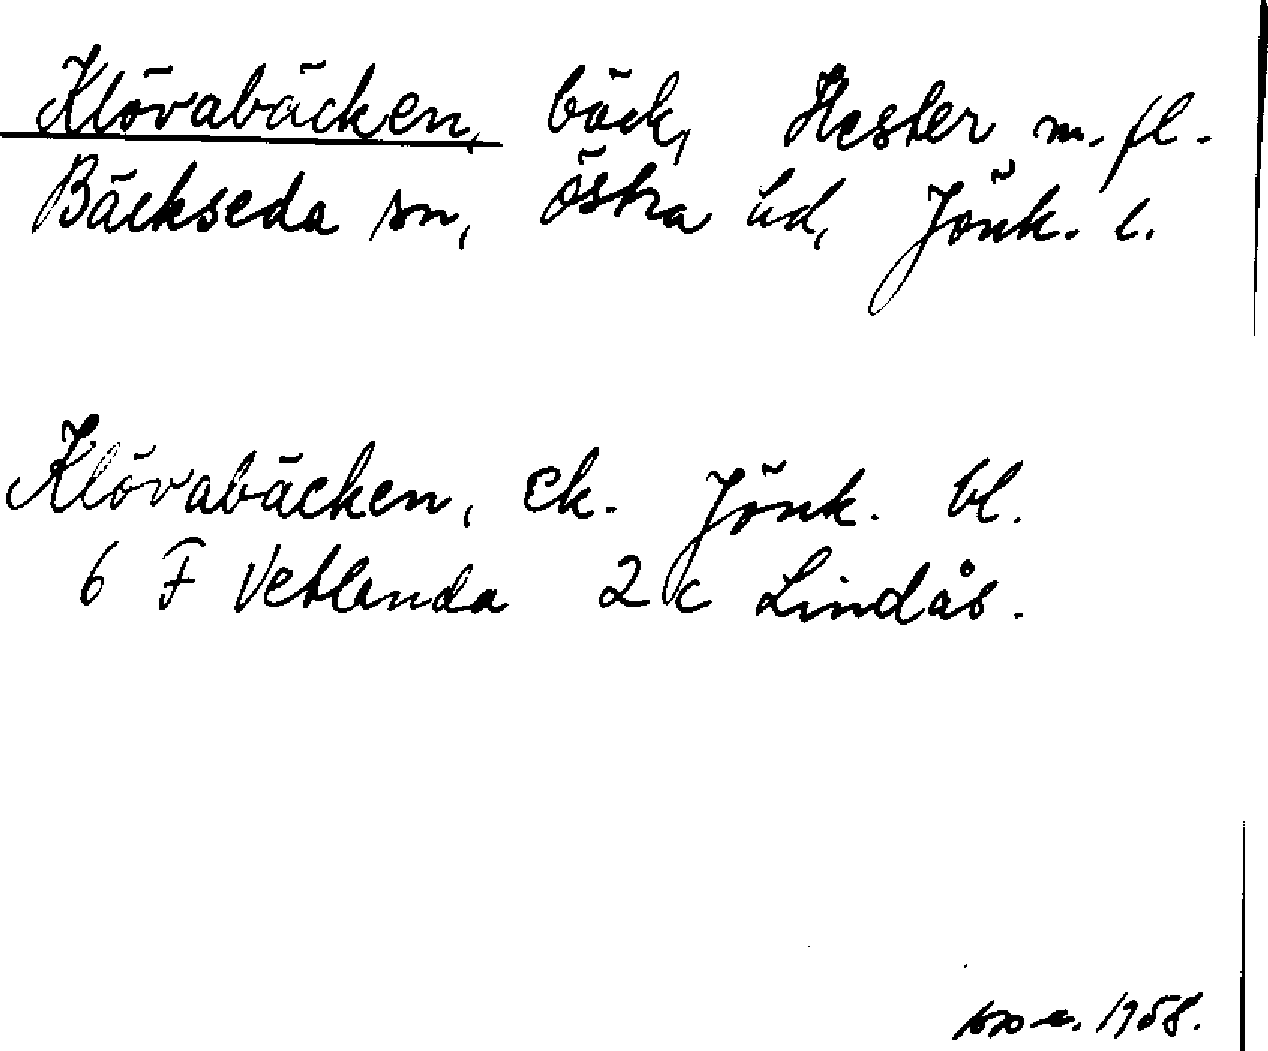 Klövabäcken, bäck, Hester m.fl.
Bäckseda sn, Östra hd, Jönk. l.
Klövabäcken, ek. Jönk. bl.
6 F Vetlanda 2 c Lindås.
1958.